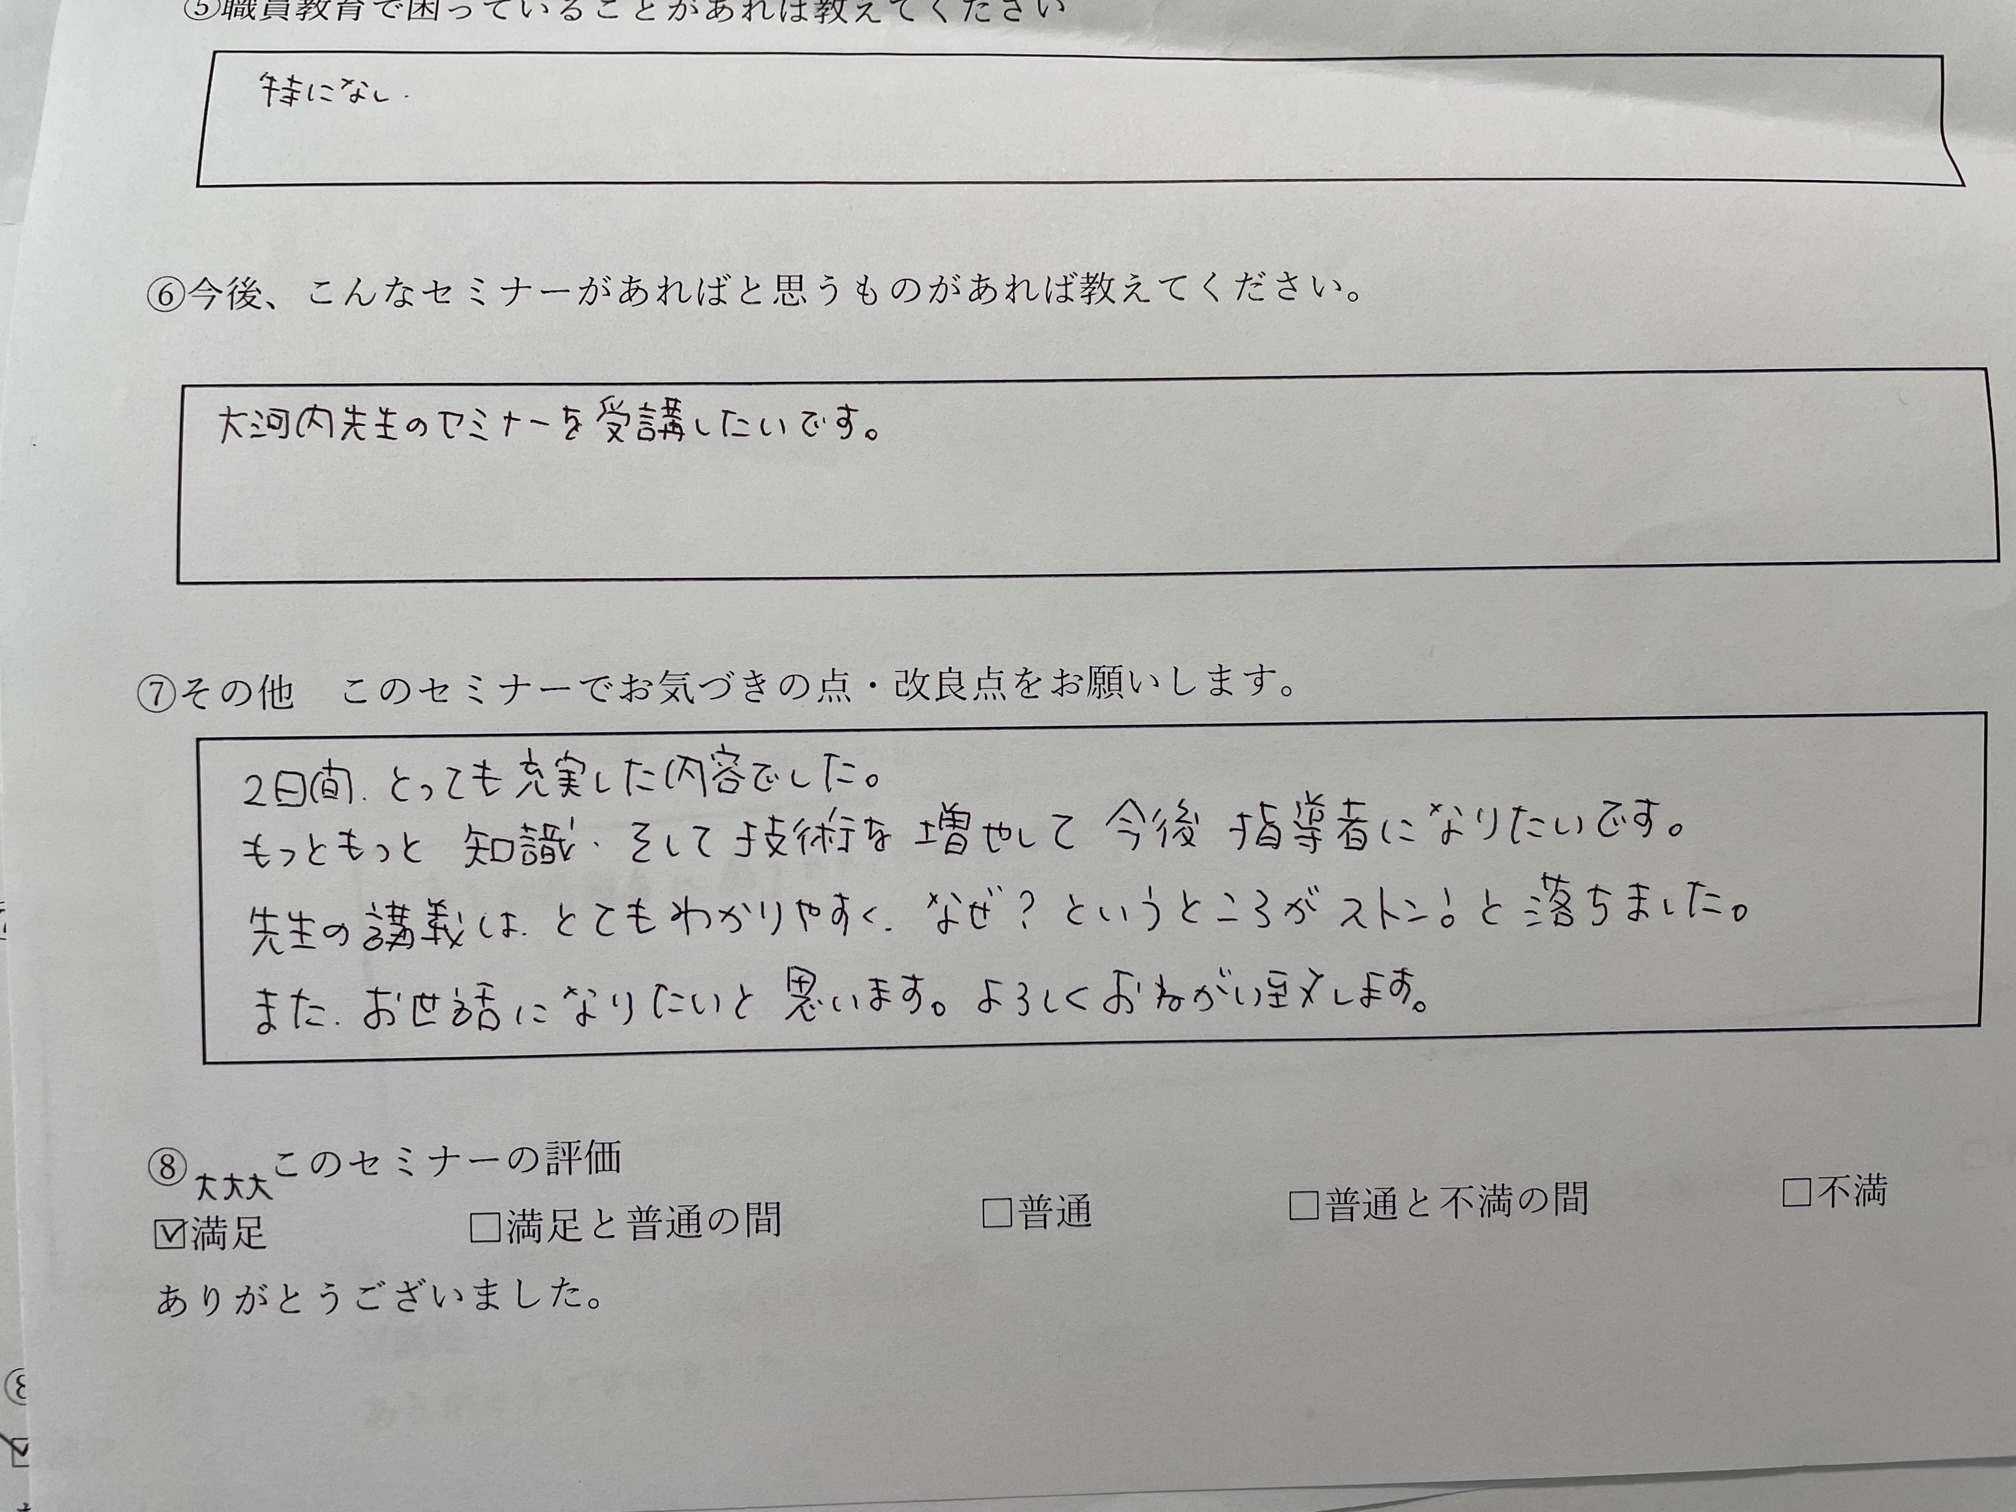 ⑤職員教育で困っていることがあれば教えてください
特になし.
⑥今後、こんなセミナーがあればと思うものがあれば教えてください。
大河内先生のセミナーを受講したいです。
⑦その他　このセミナーでお気づきの点・改良点をお願いします。
2日間、とっても充実した内容でした。
もっともっと 知識、そして技術を 増やして 今後 指導者になりたいです。
先生の講義は、とてもわかりやすく、なぜ？というところが ストン！と 落ちました。
また、お世話になりたいと 思います。よろしくおねがい致します。
⑧このセミナーの評価
大大大
☑満足 □満足と普通の間 □普通 □普通と不満の間 □不満
ありがとうございました。